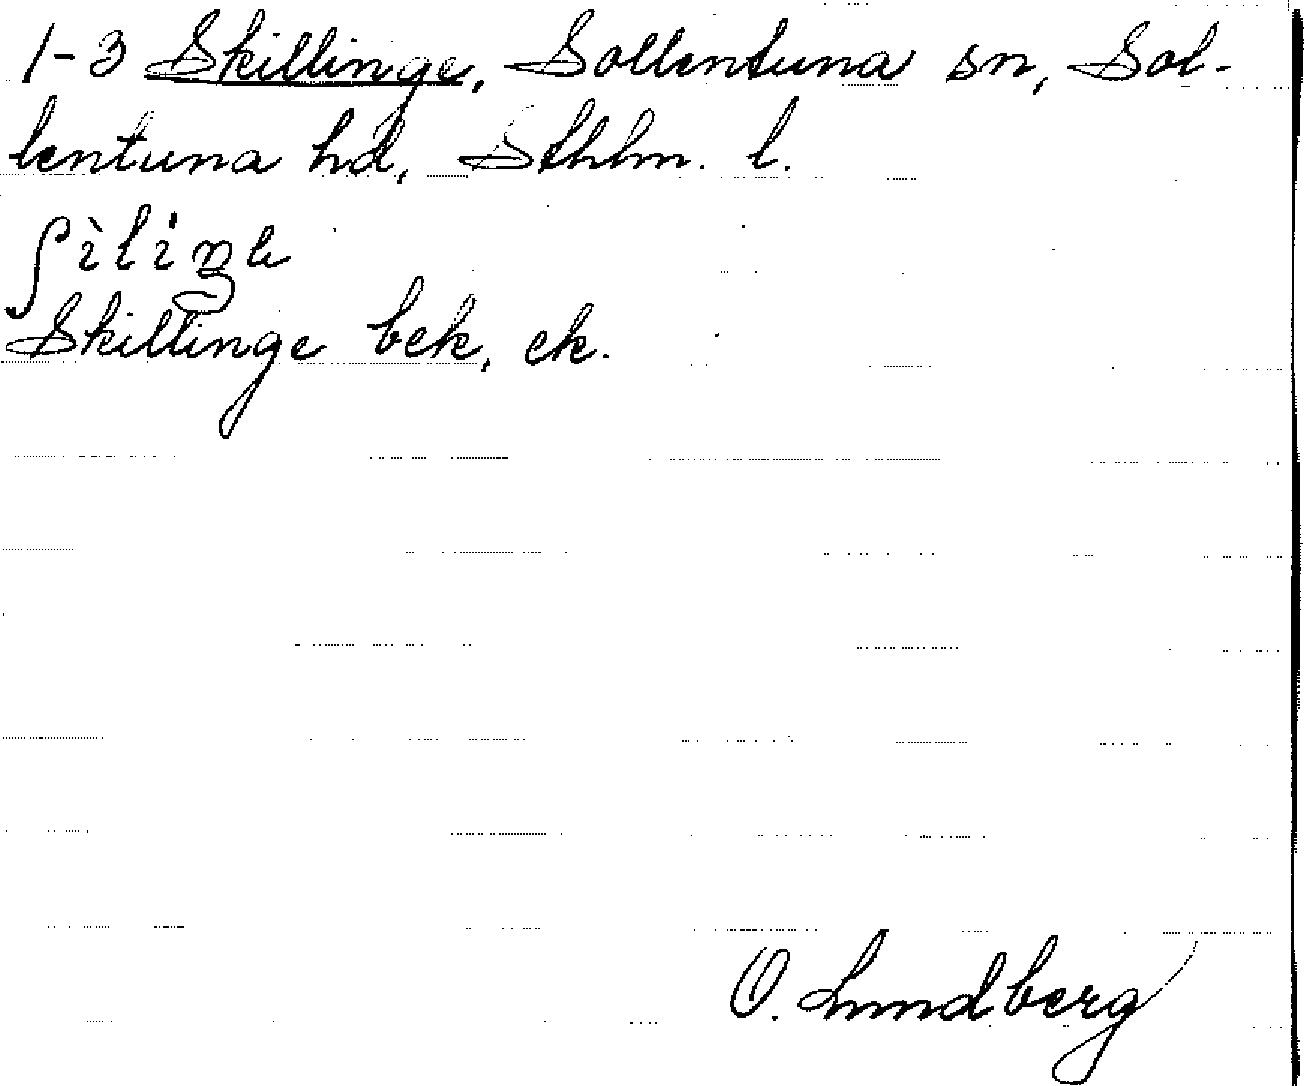 1-3 Skillinge, Sollentuna sn, Sol-
lentuna hd, Sthlm. l.
ʃìliŋe
Skillinge bek, ek.
O. Lundberg